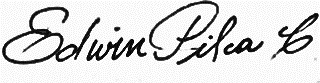 Edwin Pika C